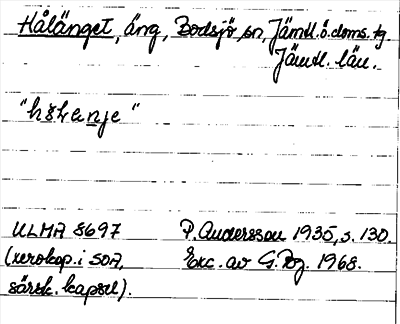 Hålänget, äng, Bodsjö sn, Jämtl. ö. doms. tg.
Jämtl. län.
"hɜLenje"
ULMA 8697 P. Andersson 1935, s. 130.
(xerokop. i SOA, Exc. av G. Bg. 1968.
särsk. kapsel).